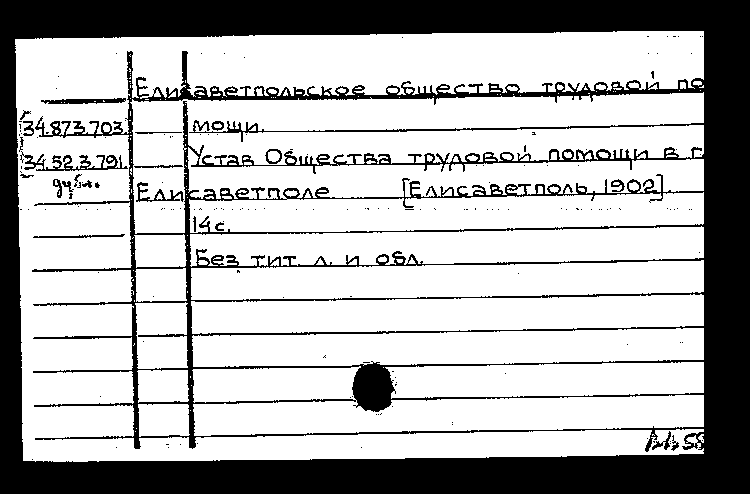 Елисаветпольское общество трудовой по
34.873.703. мощи.
34.52.3.791. Устав Общества трудовой помощи в г.
дубл. Елисаветполе [Елисаветполь, 1902].
14 с.
Без тит. л. и обл.
58